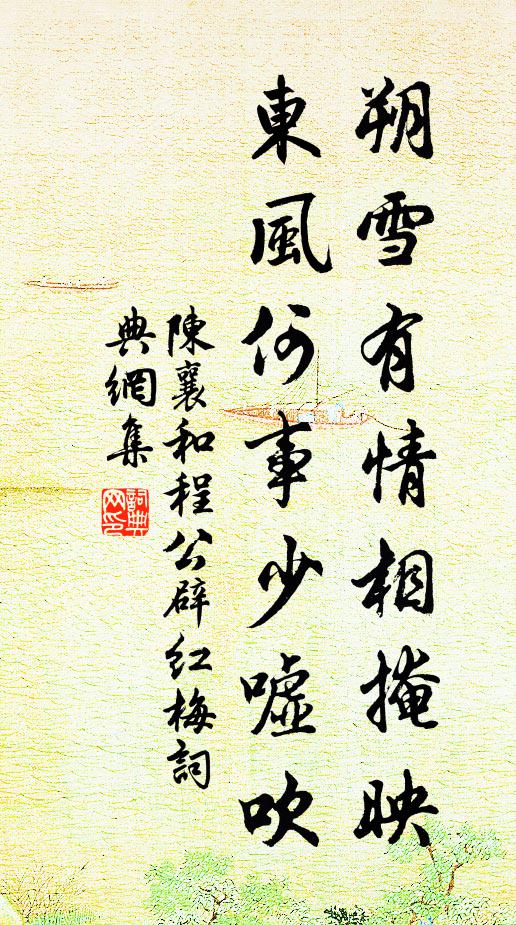 朔雪有情相掩映
東風何事少嘘吹
陳襄和程公辟红梅詞
典網集
詞典网印